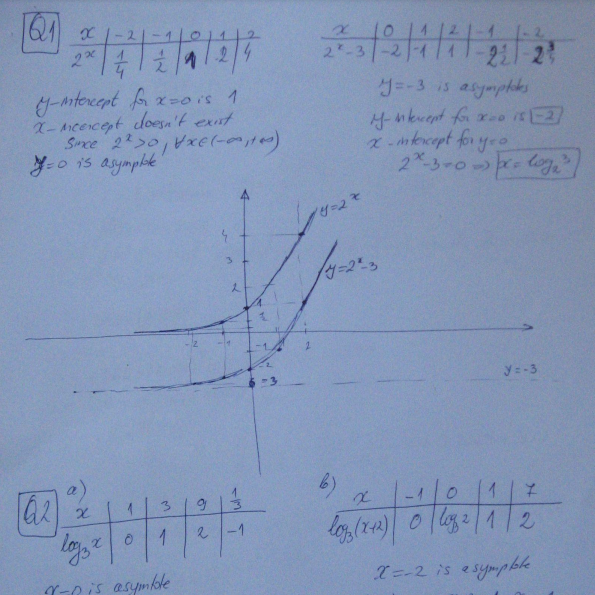 Q1
x | -2 | -1 | 0 | 1 | 2
2^x | 1/4 | 1/2 | 1 | 2 | 4
y-intercept for x=0 is 1
x-intercept doesn't exist
since 2^x>0, ∀x∈(-∞,+∞)
y=0 is asymptote
x | 0 | 1 | 2 | -1 | -2
2^x-3 | -2 | -1 | 1 | -2 1/2 | -2 3/4
y=-3 is asymptotes
y-intercept for x=0 is -2
x-intercept for y=0
2^x-3=0 => x=log_2 3
y=2^x
4
3
y=2^x-3
2
1
-2 -1 1 2
-1
-2
-3
y=-3
Q2
a)
x | 1 | 3 | 9 | 1/3
log_3 x | 0 | 1 | 2 | -1
x=0 is asymptote
b)
x | -1 | 0 | 1 | 7
log_3(x+2) | 0 | log_3 2 | 1 | 2
x=-2 is asymptote